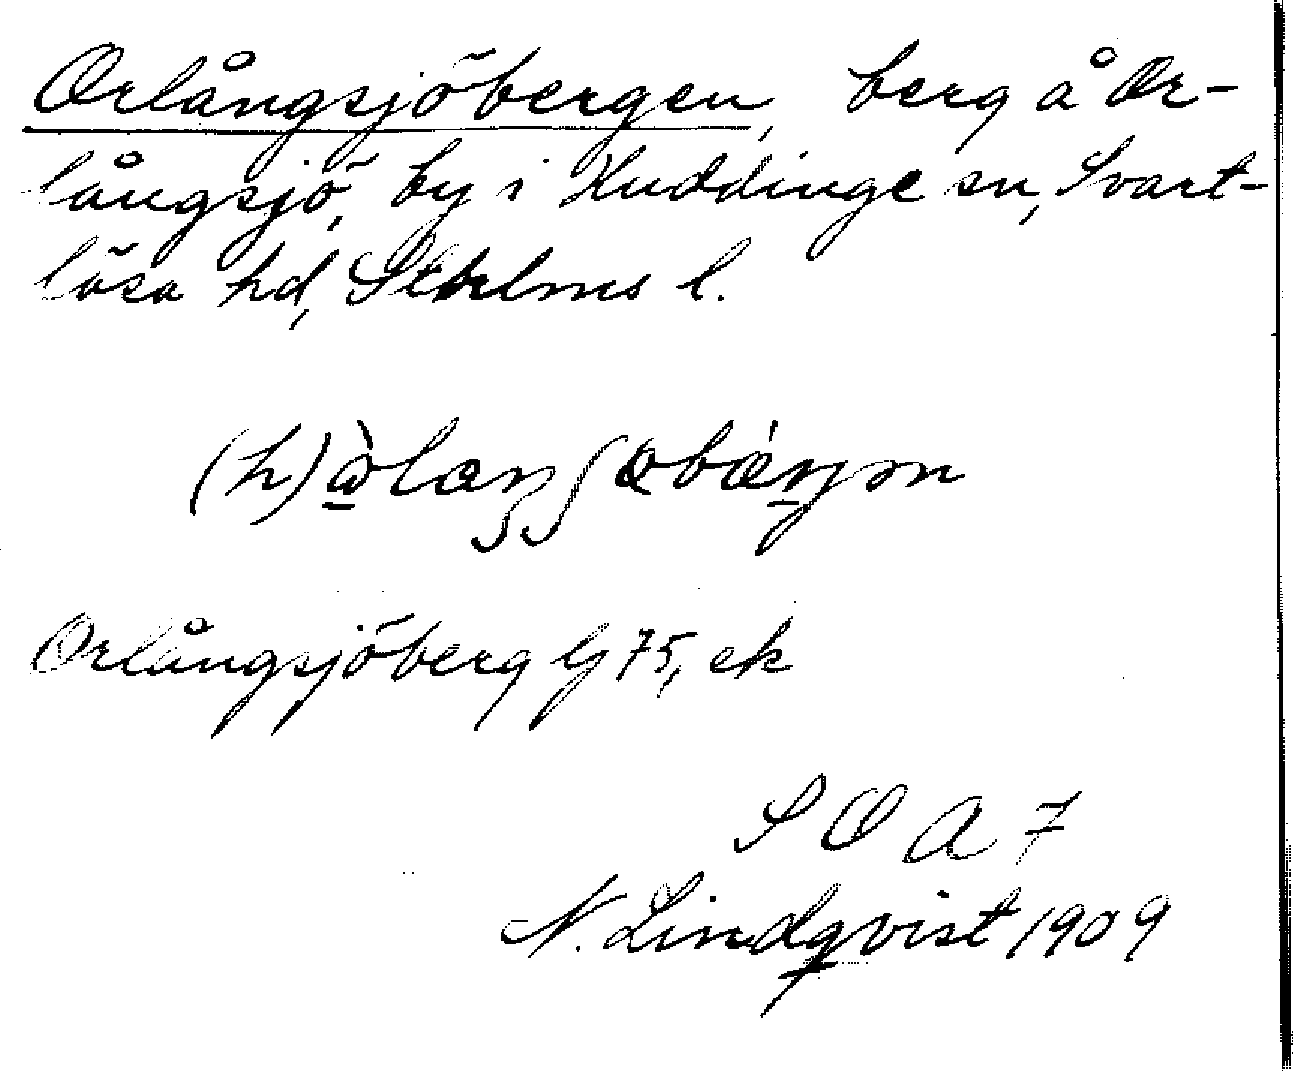 Orlångsjöbergen, berg å Or-
långsjö, by i Huddinge sn, Svart-
lösa hd, Sthlms l.
Orlångsjöberg Gg 75, ek
S O A 7
N. Lindqvist 1909